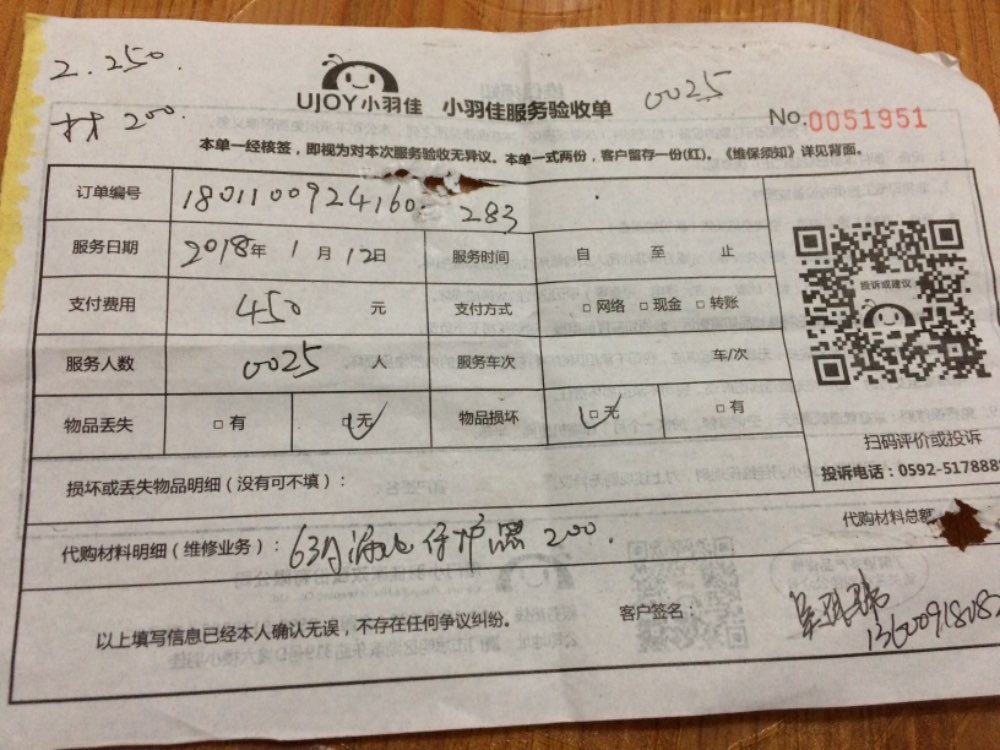 2.250.
材 200.
UJOY小羽佳 小羽佳服务验收单 0025
No.0051951
本单一经核签，即视为对本次服务验收无异议。本单一式两份，客户留存一份(红)。《维保须知》详见背面。
订单编号 1801100924160. 283
服务日期 2018年 1 月 12日 服务时间 自 至 止
支付费用 450 元 支付方式 □网络 □现金 □转账
投诉或建议
服务人数 0025 人 服务车次 车/次
物品丢失 □有 □无 物品损坏 □无 □有
扫码评价或投诉
投诉电话：0592-5178888
损坏或丢失物品明细（没有可不填）：
代购材料总额
代购材料明细（维修业务）：63A漏电保护器 200.
以上填写信息已经本人确认无误，不存在任何争议纠纷。 客户签名：